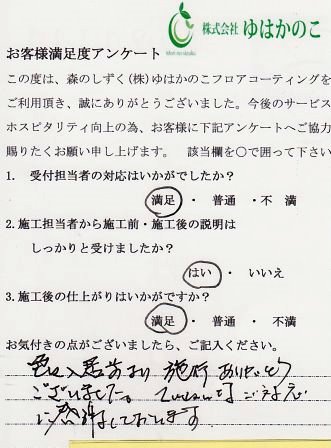 株式会社 ゆはかのこ
お客様満足度アンケート
この度は、森のしずく(株)ゆはかのこフロアコーティングを
ご利用頂き、誠にありがとうございました。今後のサービス
ホスピタリティ向上の為、お客様に下記アンケートへご協力
賜りたくお願い申し上げます。 該当欄を〇で囲って下さい
1. 受付担当者の対応はいかがでしたか?
満足 ・ 普通 ・ 不 満
2.施工担当者から施工前・施工後の説明は
しっかりと受けましたか?
はい ・ いいえ
3.施工後の仕上がりはいかがですか?
満足 ・ 普通 ・ 不満
お気付きの点がございましたら、ご記入ください。
施工 ありがとう
ございました。
に感謝しております